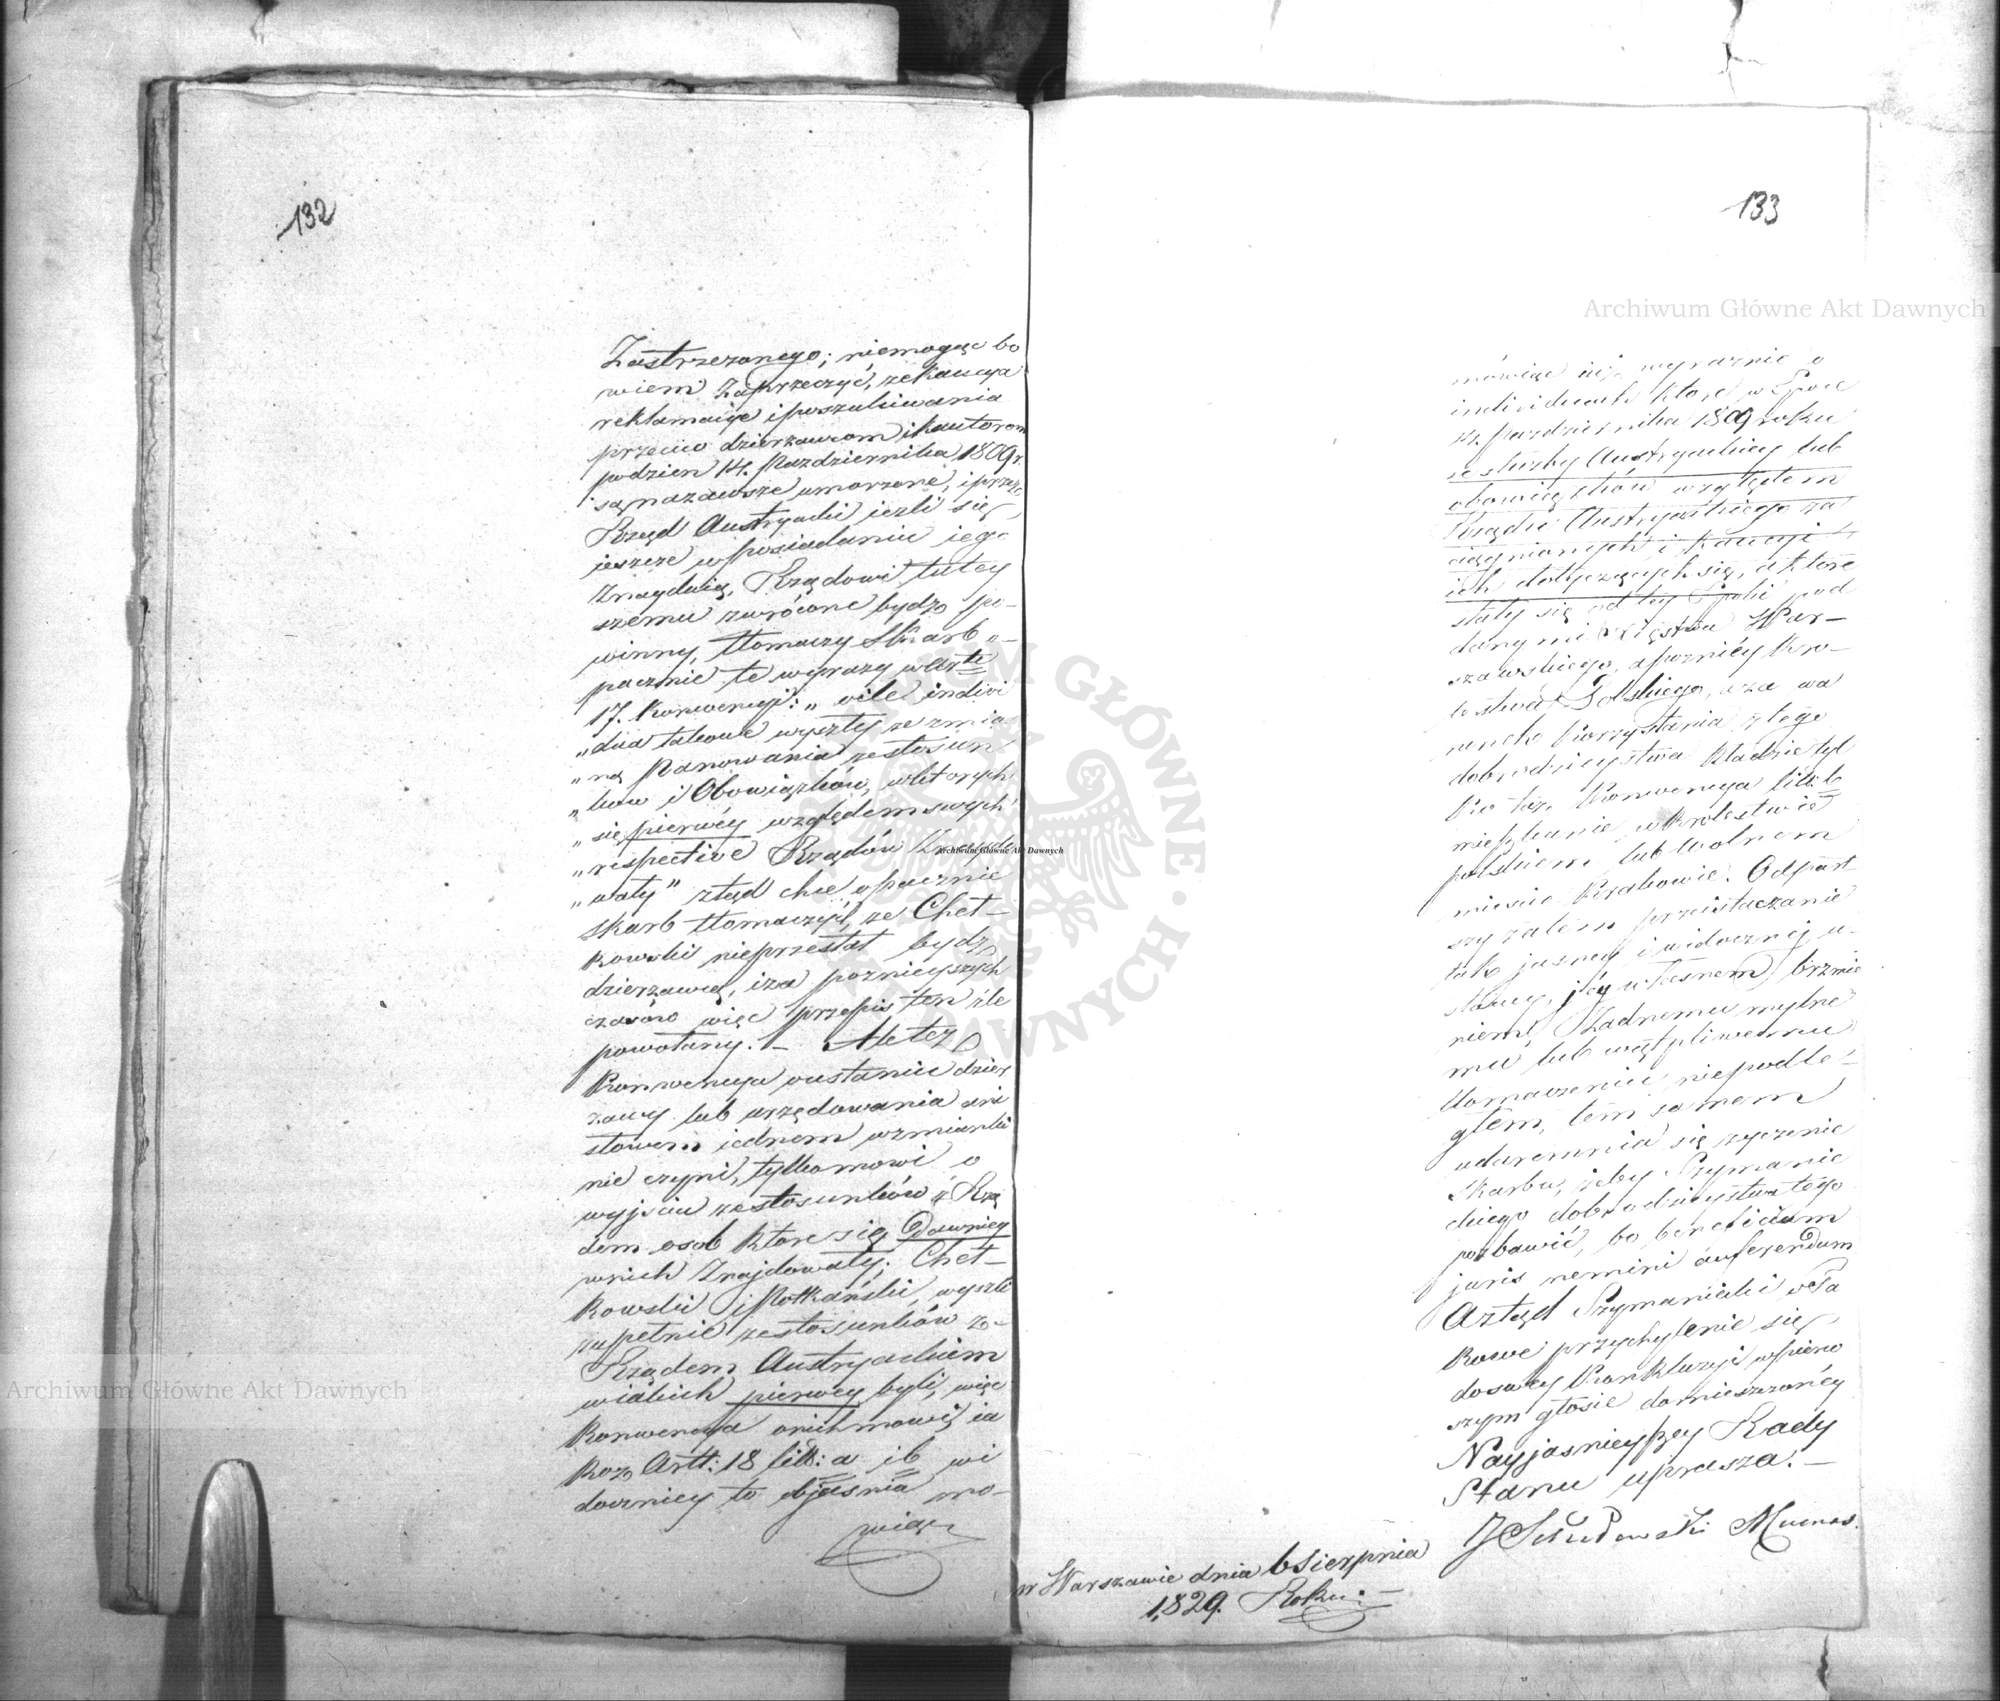 132
Zastrzezonego; niemogąc bo
wiem Zaprzeczyć, ze kaucya
reklamacye i poszukiwania
przeciw dzierzawcom i kautorom
podzien 14. Pazdziernika 1809 r.
są nazawsze umorzone, i przez
Rząd Austryacki iezli się
jeszcze w posiadaniu iego
Znayduią, Rządowi tutey
szemu zwrócone bydz po-
winny, tłomaczy Skarb o-
pacznie te wyrazy w Arte
17. Konwencyi: „ oile indivi
„dua takowe wyszły ze zmia
„ną Panowania ze stosun
„ków i Obowiązków, w których
„się pierwéy względem swych
„respective Rządów Znaydo
„wały" ztąd chce opacznie
Skarb tłomaczyć, ze Chet-
kowski nieprzestał bydz
dzierzawcą, i za poznieyszych
czasów więc przepis ten źle
powołany. - Ale tez
Konwencya o ustaniu dzier
zawy lub urzędowania ani
słowem iednem wzmianki
nie czyni, tylko mowi o
wyjściu ze stosunków z Rzą
dem osob które się Dawniey
w nich Znajdowały; Chet-
kowski i Potkański, wyszli
zupełnie ze stosunków z
Rządem Austryackiem
w iakich pierwey byli, więc
Konwencya o nich mowi, ia
koz Artt: 18 litt: a i b wi
doczniey to objasnia mo-
wiąc
133
Archiwum Główne Akt Dawnych
mówiąc wyraznie o
individuach które w Epoce
14. Pazdziernika 1809 roku
ze służby Austryackiey lub
obowiązków względem
Rządu Austryackiego za
ciągnionych i Kaucyi
ich dotyczących się, a które
stały się od tey Epoki pod
danymi Xięstwa War-
szawskiego, a pozniéy Kro-
lestwa Polskiego, a za wa
runek korzystania z tego
dobrodzieystwa kładzie tyl
ko taz Konwencya litt: b
mieszkanie w Krolestwie
polskiem lub Wolnem
miescie Krakowie. Odpart
szy zatem przeistaczanie
tak jasney i widoczney u-
stawy, jéy własnem brzmie
niem, Zadnemu mylne
mu lub wątpliwemu
tłomaczeniu niepodle-
głem, tem samem
udaremnia się zyczenie
Skarbu, zeby Szymanie
ckiego dobrodzieystwa tego
pozbawić, bo beneficium
juris nemini auferendum
Aztąd Szymaniecki o Ła
skawe przychylenie się
do swey Konkluzyi w pierw
szym głosie domieszczonéy
Nayjasnieyszey Rady
Stanu uprasza. -
w Warszawie dnia 6 Sierpnia
1829. Roku. -
Archiwum Główne Akt Dawnych
Archiwum Główne Akt Dawnych